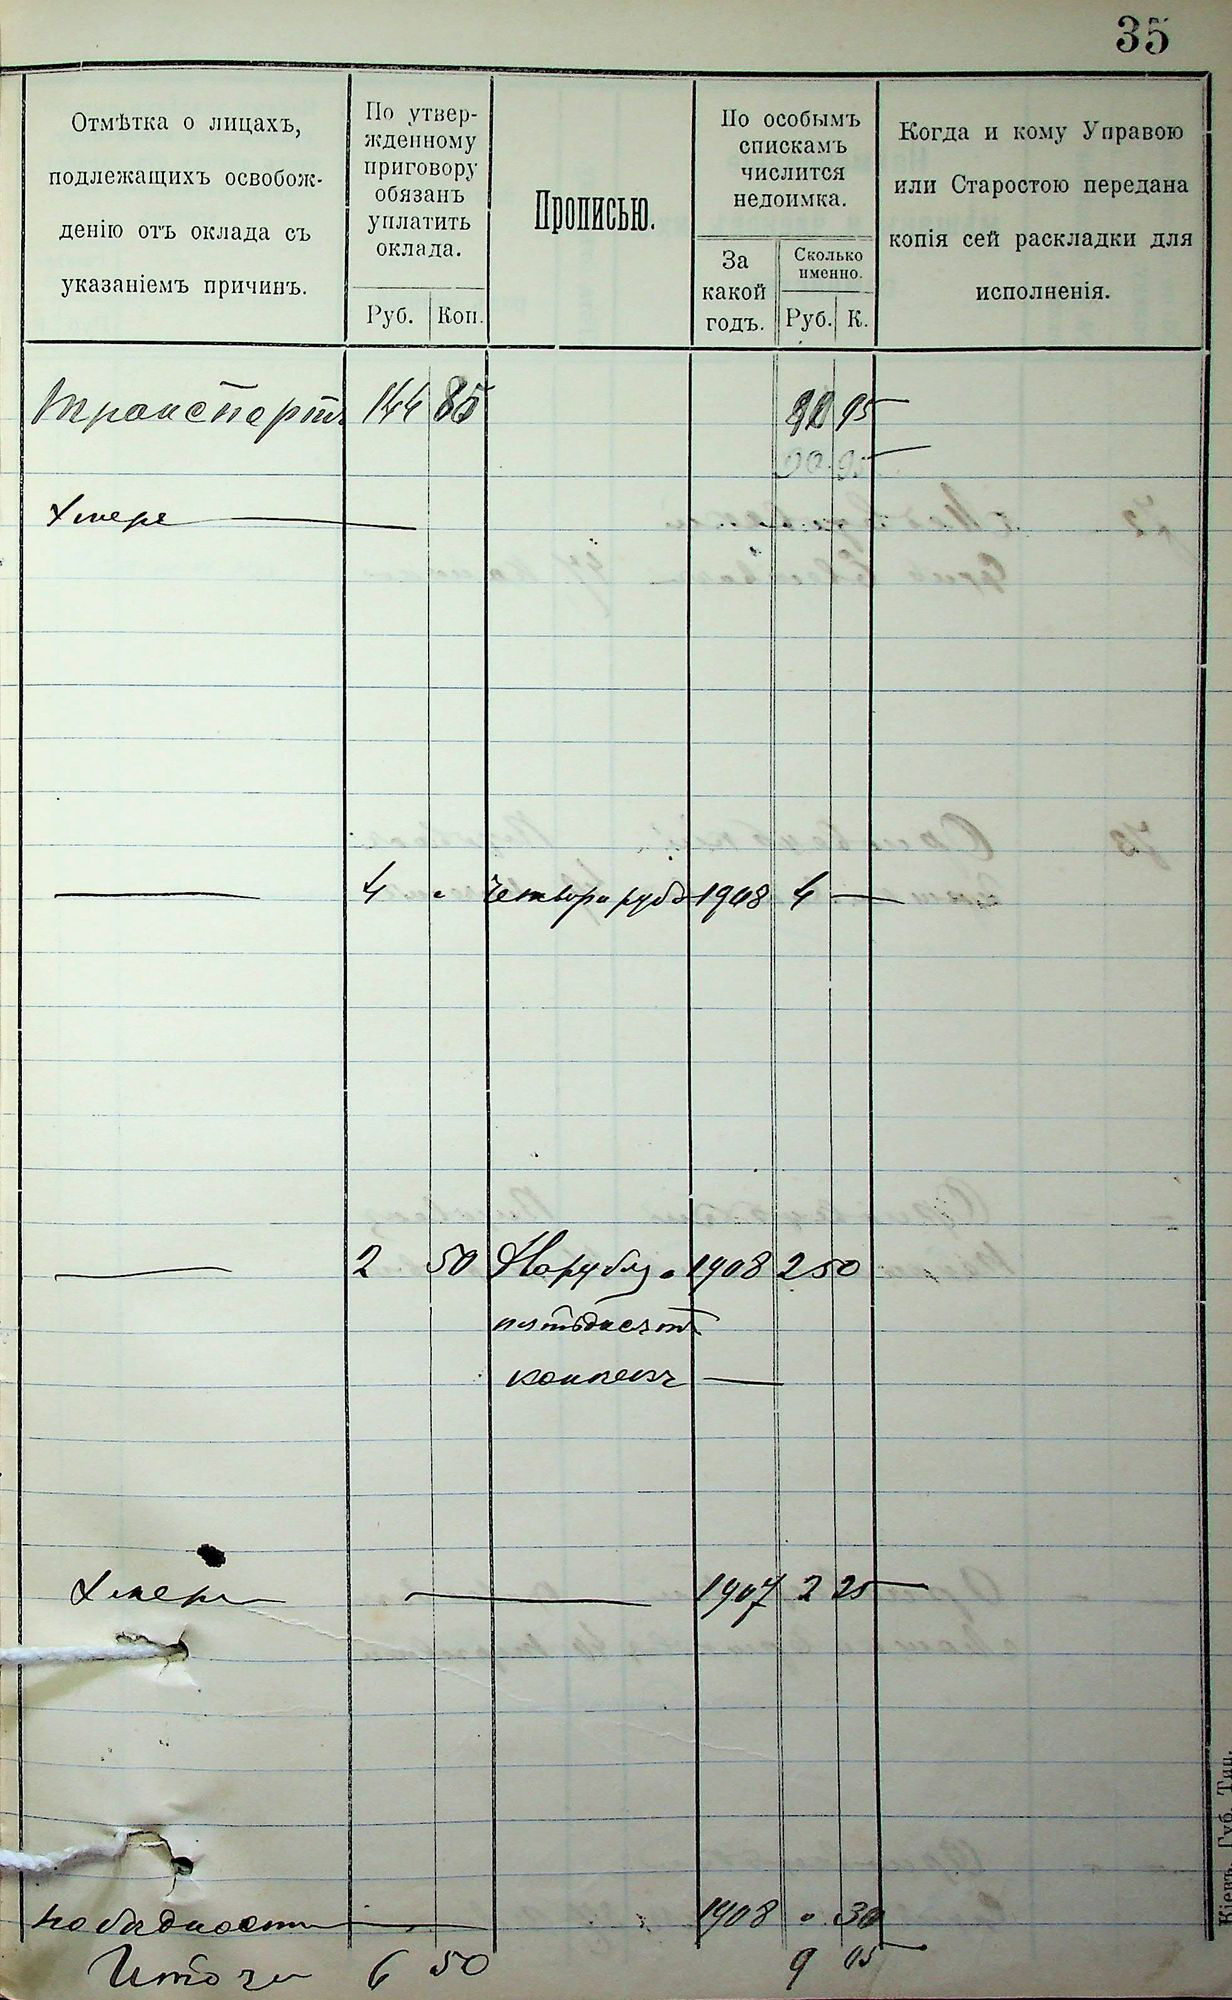 35
Отмѣтка о лицахъ,
подлежащихъ освобож-
денію отъ оклада съ
указаніемъ причинъ.
По утвер-
жденному
приговору
обязанъ
уплатить
оклада.
Руб. Коп.
Прописью.
По особымъ
спискамъ
числится
недоимка.
За
какой
годъ.
Сколько
именно.
Руб. К.
Когда и кому Управою
или Старостою передана
копія сей раскладки для
исполненія.
Транспортъ 144 85 95
умеръ
4 Четыре руб 1908 4 —
2 50 рубля 1908 2 50
пятьдесятъ
копѣекъ —
умеръ — 1907 2 25
по бѣдности — 1908 30
Итого 6 50 9 05
Кіевъ. Губ. Тип.